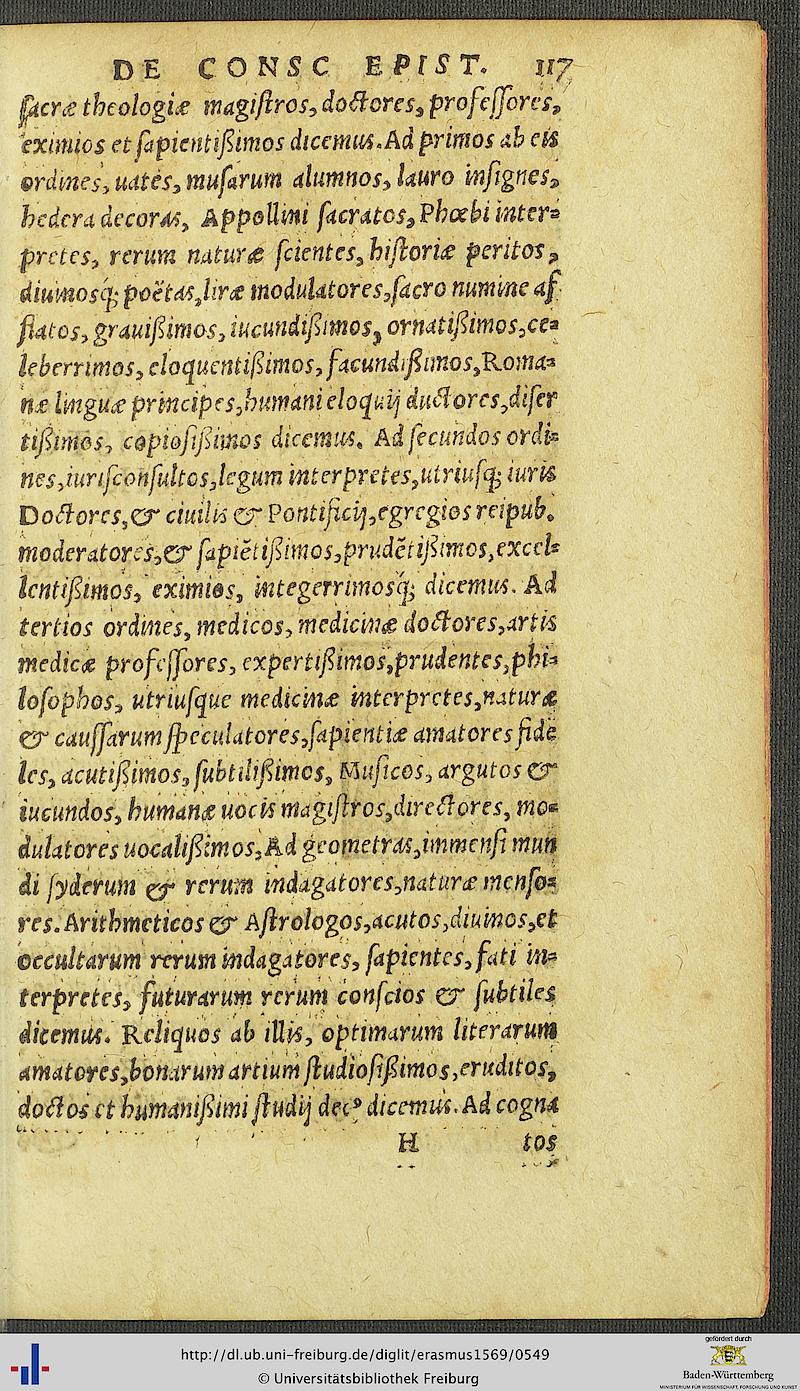 DE CONSC EPIST. 117
sacræ theologiæ magistros, doctores, professores,
eximios et sapientißimos dicemus. Ad primos ab eis
ordines, uates, musarum alumnos, lauro insignes,
hedera decoras, Appollini sacratos, Phœbi inter=
pretes, rerum naturæ scientes, historiæ peritos,
diuinosq́; poëtas, liræ modulatores, sacro numine af
flatos, grauißimos, iucundißimos, ornatißimos, ce=
leberrimos, eloquentißimos, facundißimos, Roma=
næ linguæ principes, humani eloquij ductores, diser
tißimos, copiosißimos dicemus. Ad secundos ordi=
nes, iurisconsultos, legum interpretes, utriusq; iuris
Doctores, & ciuilis & Pontificij, egregios reipub.
moderatores, & sapiẽtißimos, prudẽtißimos, excel=
lentißimos, eximios, integerrimosq́; dicemus. Ad
tertios ordines, medicos, medicinæ doctores, artis
medicæ professores, expertißimos, prudentes, phi=
losophos, utriusque medicinæ interpretes, naturæ
& caussarum speculatores, sapientiæ amatores fide
les, acutißimos, subtilißimos, Musicos, argutos &
iucundos, humanæ uocis magistros, directores, mo=
dulatores uocalißimos, Ad geometras, immensi mun
di syderum & rerum indagatores, naturæ menso=
res. Arithmeticos & Astrologos, acutos, diuinos, et
occultarum rerum indagatores, sapientes, fati in=
terpretes, futurarum rerum conscios & subtiles
dicemus. Reliquos ab illis, optimarum literarum
amatores, bonarum artium studiosißimos, eruditos,
doctos et humanißimi studij decꝰ dicemus. Ad cogna
H tos
http://dl.ub.uni-freiburg.de/diglit/erasmus1569/0549
© Universitätsbibliothek Freiburg
gefördert durch
Baden-Württemberg
MINISTERIUM FÜR WISSENSCHAFT, FORSCHUNG UND KUNST